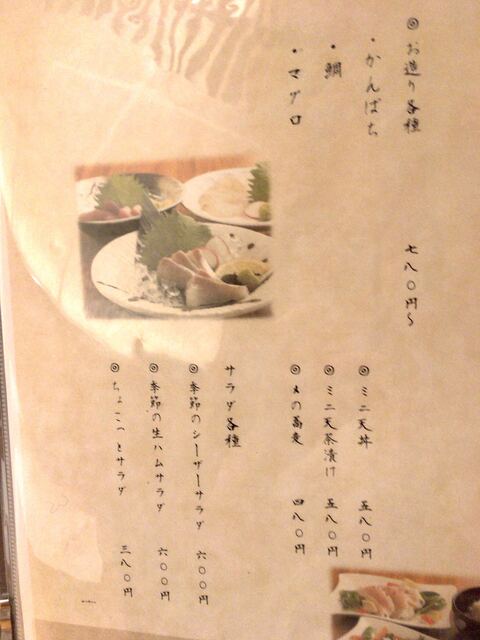 ◎お造り各種 七八〇円〜
・かんぱち
・鯛
・マグロ
◎ミニ天丼 五八〇円
◎ミニ天茶漬け 五八〇円
◎〆の蕎麦 四八〇円
サラダ各種
◎季節のシーザーサラダ 六〇〇円
◎季節の生ハムサラダ 六〇〇円
◎ちょこっとサラダ 三八〇円